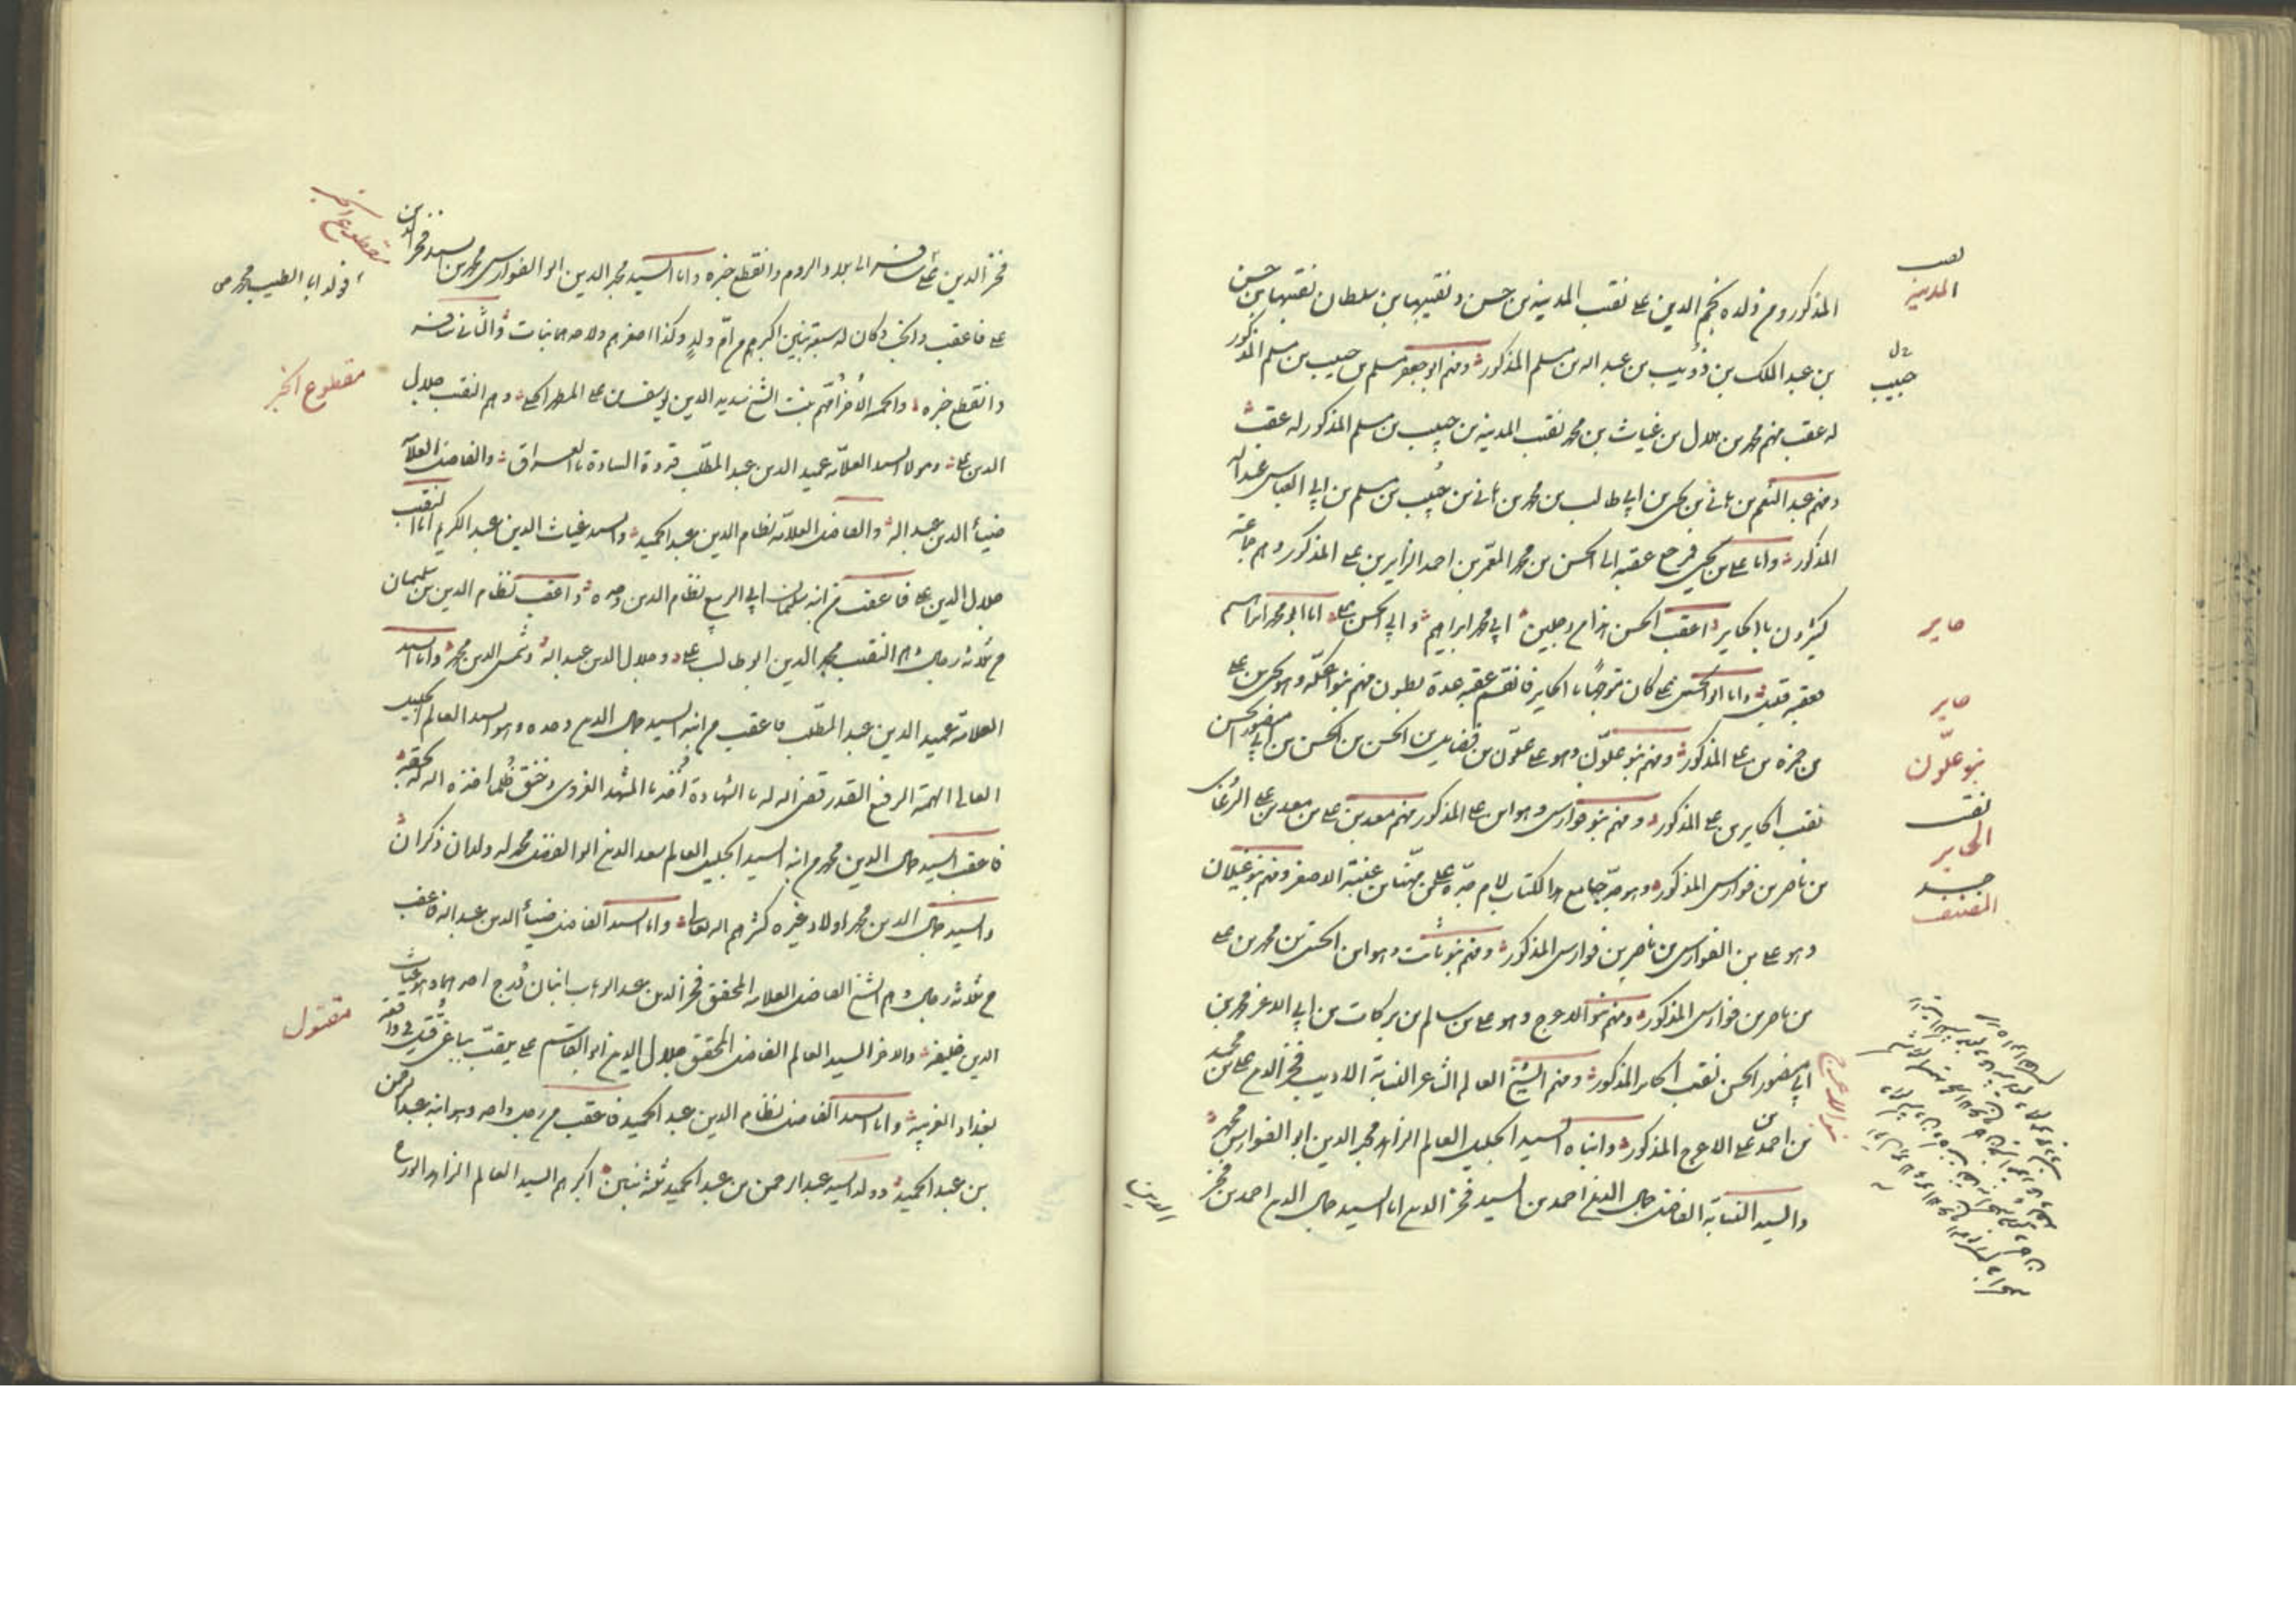 المذكور ومن ولده نجم الدين على نقيب المدينة بن حسن ونقيبها بن سلطان نقيبها بن حسن
بن عبد الملك بن ذويب بن عبد الله بن مسلم المذكور ومنهم ابو جعفر مسلم بن حبيب بن مسلم المذكور
له عقب منهم محمد بن هلال بن غياث بن محمد نقيب المدينة بن حبيب بن مسلم المذكور له عقب
ومنهم عبد المنعم بن هانى بن يحيى بن ابي طالب بن محمد بن هانى بن حبيب بن مسلم بن ابي العباس عبد الله
المذكور واما على بن يحيى فرجع عقبه الى الحسن بن محمد المعمر بن احمد الزاير بن على المذكور وهم جماعة
كثيرون بالحاير اعقب الحسن هذا من رجلين ابي محمد ابراهيم وابي الحسن على اما ابو محمد ابراهيم
فعقبه قليل واما ابو الحسن على كان متوجها بالحاير فانقسم عقبه عدة بطون منهم بنو عكة وهو يحيى بن على
بن حمزة بن على المذكور ومنهم بنو علوّن وهو على علوّن بن فضايل بن الحسن بن الحسن بن ابي منصور الحسن
نقيب الحاير بن على المذكور ومنهم بنو فوارس وهو ابن على المذكور منهم معد بن على بن معد بن على الزغاى
بن ناصر بن فوارس المذكور وهو جدّ جامع هذا الكتاب لام جدّه على بن مهنا بن عنبة الاصغر ومنهم بنو غيلان
وهو على بن الفوارس بن ناصر بن فوارس المذكور ومنهم بنو ثابت وهو ابن الحسين بن محمد بن على
بن ناصر بن فوارس المذكور ومنهم بنو الاعرج وهو على بن سالم بن بركات بن ابي الاعز محمد بن
ابي منصور الحسن نقيب الحاير المذكور ومنهم الشيخ العالم الشاعر النسابة الاديب فخر الدين على بن محمد
بن احمد بن على الاعرج المذكور وابناه السيد الجليل العالم الزاهد مجد الدين ابو الفوارس محمد
والسيد النسابة الفاضل جمال الدين احمد بن السيد فخر الدين اما السيد جمال الدين احمد بن فخر
الدين
نقيب
المدينة
حبيب
حاير
حاير
بنو علّون
نقيب
الحاير
جد
المصنف
بنو الاعرج
فخر الدين على سافر الى بلاد الروم وانقطع خبره واما السيد مجد الدين ابو الفوارس محمد بن السيد فخر الدين
على فاعقب وانجب وكان له سبعة بنين اكبرهم من ام ولد وكذا اصغرهم ولاحدهما بنات والثانى سافر
وانقطع خبره والخمسة الاخر امهم بنت الشيخ سديد الدين يوسف بن على المطهر الحلى وهم النقيب جلال
الدين على ومولانا السيد العلامة عميد الدين عبد المطلب قدوة السادة بالعراق والفاضل العلامة
ضياء الدين عبد الله والفاضل العلامة نظام الدين عبد الحميد والسيد غياث الدين عبد الكريم اما النقيب
جلال الدين على فاعقب من ابنه سليمان ابي الربيع نظام الدين وحده واعقب نظام الدين سليمان
من ثلاثة رجال هم النقيب مجد الدين ابو طالب على وجلال الدين عبد الله وشمس الدين محمد واما السيد
العلامة عميد الدين عبد المطلب فاعقب من ابنه السيد جمال الدين وحده وهو السيد العالم الجليل
العالى الهمة الرفيع القدر قضى الله له بالشهادة اخذ بالمشهد الغروى وخنق ظلما اخذه الله له بحقه
فاعقب السيد جمال الدين محمد من ابنه السيد الجليل العالم سعد الدين ابو الفضل محمد له ولدان ذكران
والسيد جمال الدين محمد اولاد غيره كثرهم الله تعالى واما السيد الفاضل ضياء الدين عبد الله فاعقب
من ثلاثة رجال هم الشيخ الفاضل العلامة المحقق فخر الدين عبد الوهاب ابنان درج احدهما وهو غياث
الدين خليفة والاخر السيد العالم الفاضل المحقق جلال الدين ابو القاسم على يلقب بياغى قتل فى واقعة
بغداد القريبة واما السيد الفاضل نظام الدين عبد الحميد فاعقب من رجل واحد وهو ابنه عبد الرحمن
بن عبد الحميد وولد السيد عبد الرحمن بن عبد الحميد ثلثة بنين اكبرهم السيد العالم الزاهد الورع
مقطوع الخبر
مقطوع الخبر
مقتول